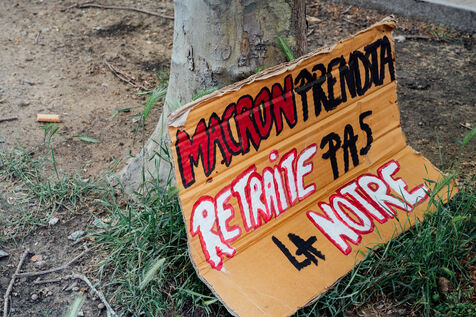 MACRON PRENDTA
RETRAITE PAS
LA NOTRE